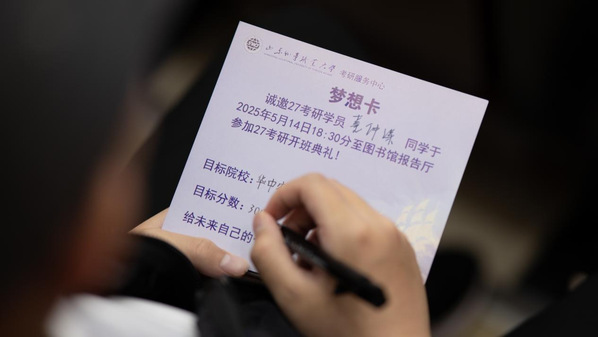 考研服务中心
梦想卡
诚邀27考研学员 同学于
2025年5月14日18:30分至图书馆报告厅
参加27考研开班典礼!
目标院校:华中
目标分数:30
给未来自己的